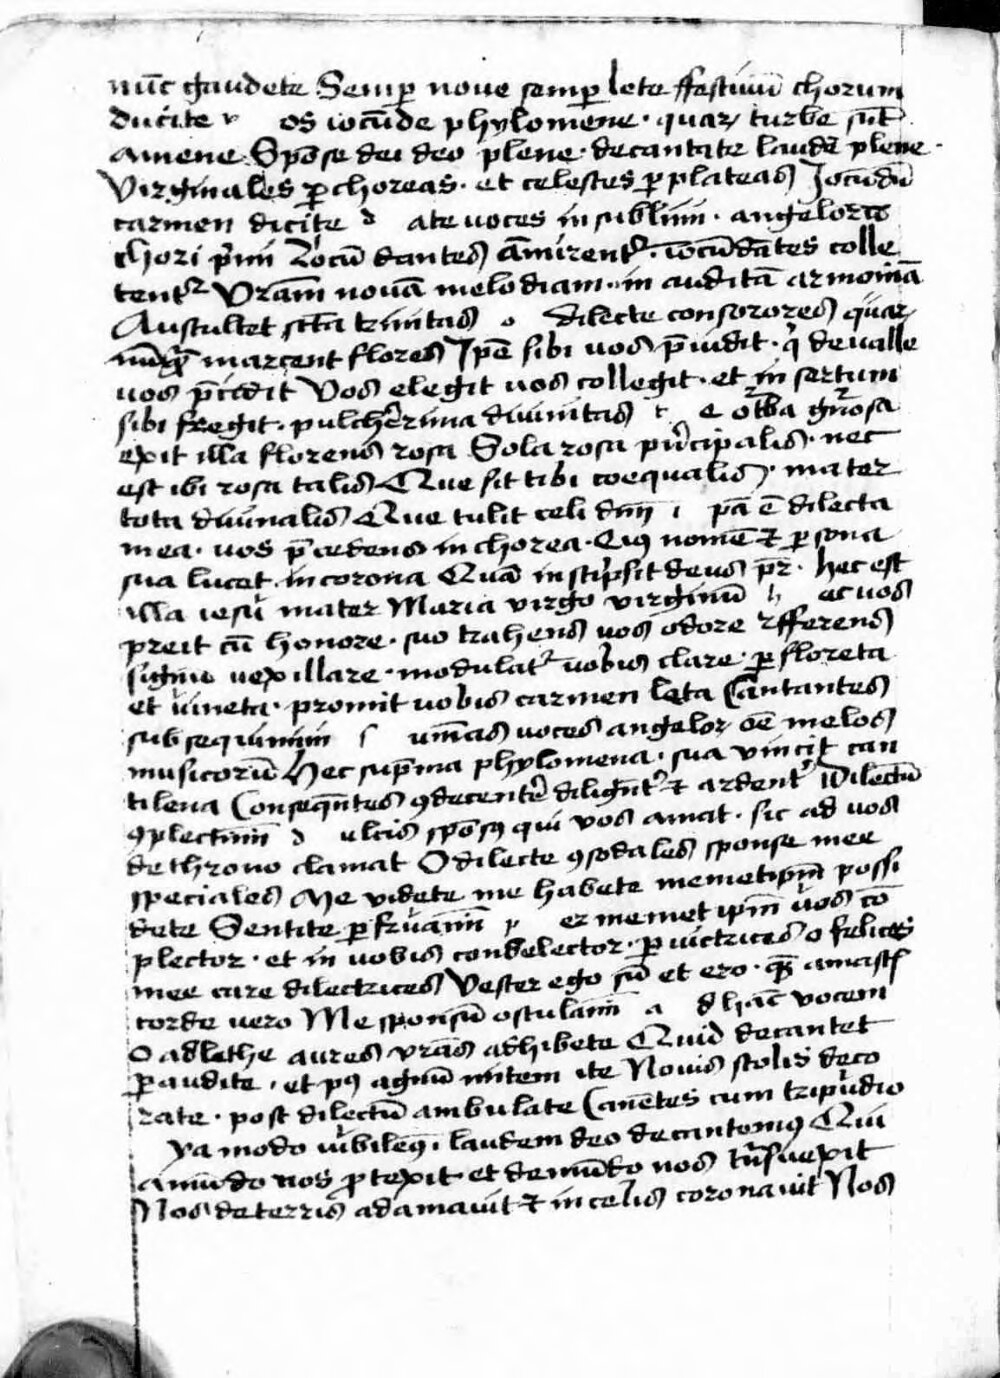 nūc gaudete Semꝑ noue semꝑ lete ffestiuū chorum
ducite v os iocūde phylomene · quaꝝ turbe sūt
amene Spōse dei deo plene · decantate laudē plene ·
Virginales ꝑ choreas · et celestes ꝑ plateas Jocūdū
carmen dicite d ate voces in sublimi · angeloru
chori pͥmi Jocūdantes āmirentͬ · iocūdātes colle
tentͬ Vrām nouā melodiam · in auditā armoniā
Auscultet sctā trinitas o dilecte consorores quaꝝ
nūqͣ marcent flores Jpē sibi uos p̄uidit · qͥ de ualle
uos p̄cidit Vos elegit uos collegit · et in sertum
sibi fregit · pulcherrima diuinitas e gn̄osa
exit illa florens rosa Sola rosa pͥncipalis · nec
est ibi rosa talis Que sit tibi coequalis · mater
tota diuinalis Que tulit celi dn̄m i pā ē dilecta
mea · uos p̄cedens in chorea · Eiꝰ nomē ⁊ ꝑsona
sua lucet in corona Quā inscͥpsit deus pr̄ · hec est
illa iesu mater Maria virgo virginū h ec uos
preit cū honore · suo trahens uos odore Efferens
signū uexillare · modulatͬ uobis clare · ꝑ floreta
et vineta · promit uobis carmen leta Cantantes
subsequimini s ūmas uoces angeloꝝ oē melos
musicorū Hec sup̄ma phylomena · sua vincit can
tilena Conseqn̄tes ꝯdecentͤr dilign̄tͬ ⁊ ardentͬ Dilectū
ꝯplectimī d ulcis spōsꝰ qui vos amat · sic ad uos
de throno clamat O dilecte ꝯsodales sponse mee
speciales Me videte me habete memetipm̄ possi
dete Sentite ꝑfruāmī p er memet ipm̄ uos cō
plector · et in uobis condelector · ꝑ uictrices o felices
mee care dilectrices Vester ego sū et ero · qͣs amastͥ
corde uero Me sponsū ostulāmī a d hāc vocem
O adlethe aures vrās adhibete Quid decantet
ꝑaudite · et pꝰ agnū mitem ite Nouis stolis deco
rate · post dilectū ambulate Canētes cum tripudio
ya modo iubilemꝰ · laudem deo decantemꝰ Qui
a mūdo nos protexit et de mūdo nos trāsuexit
Nos de terris adamauit ⁊ in celis coronauit Nos